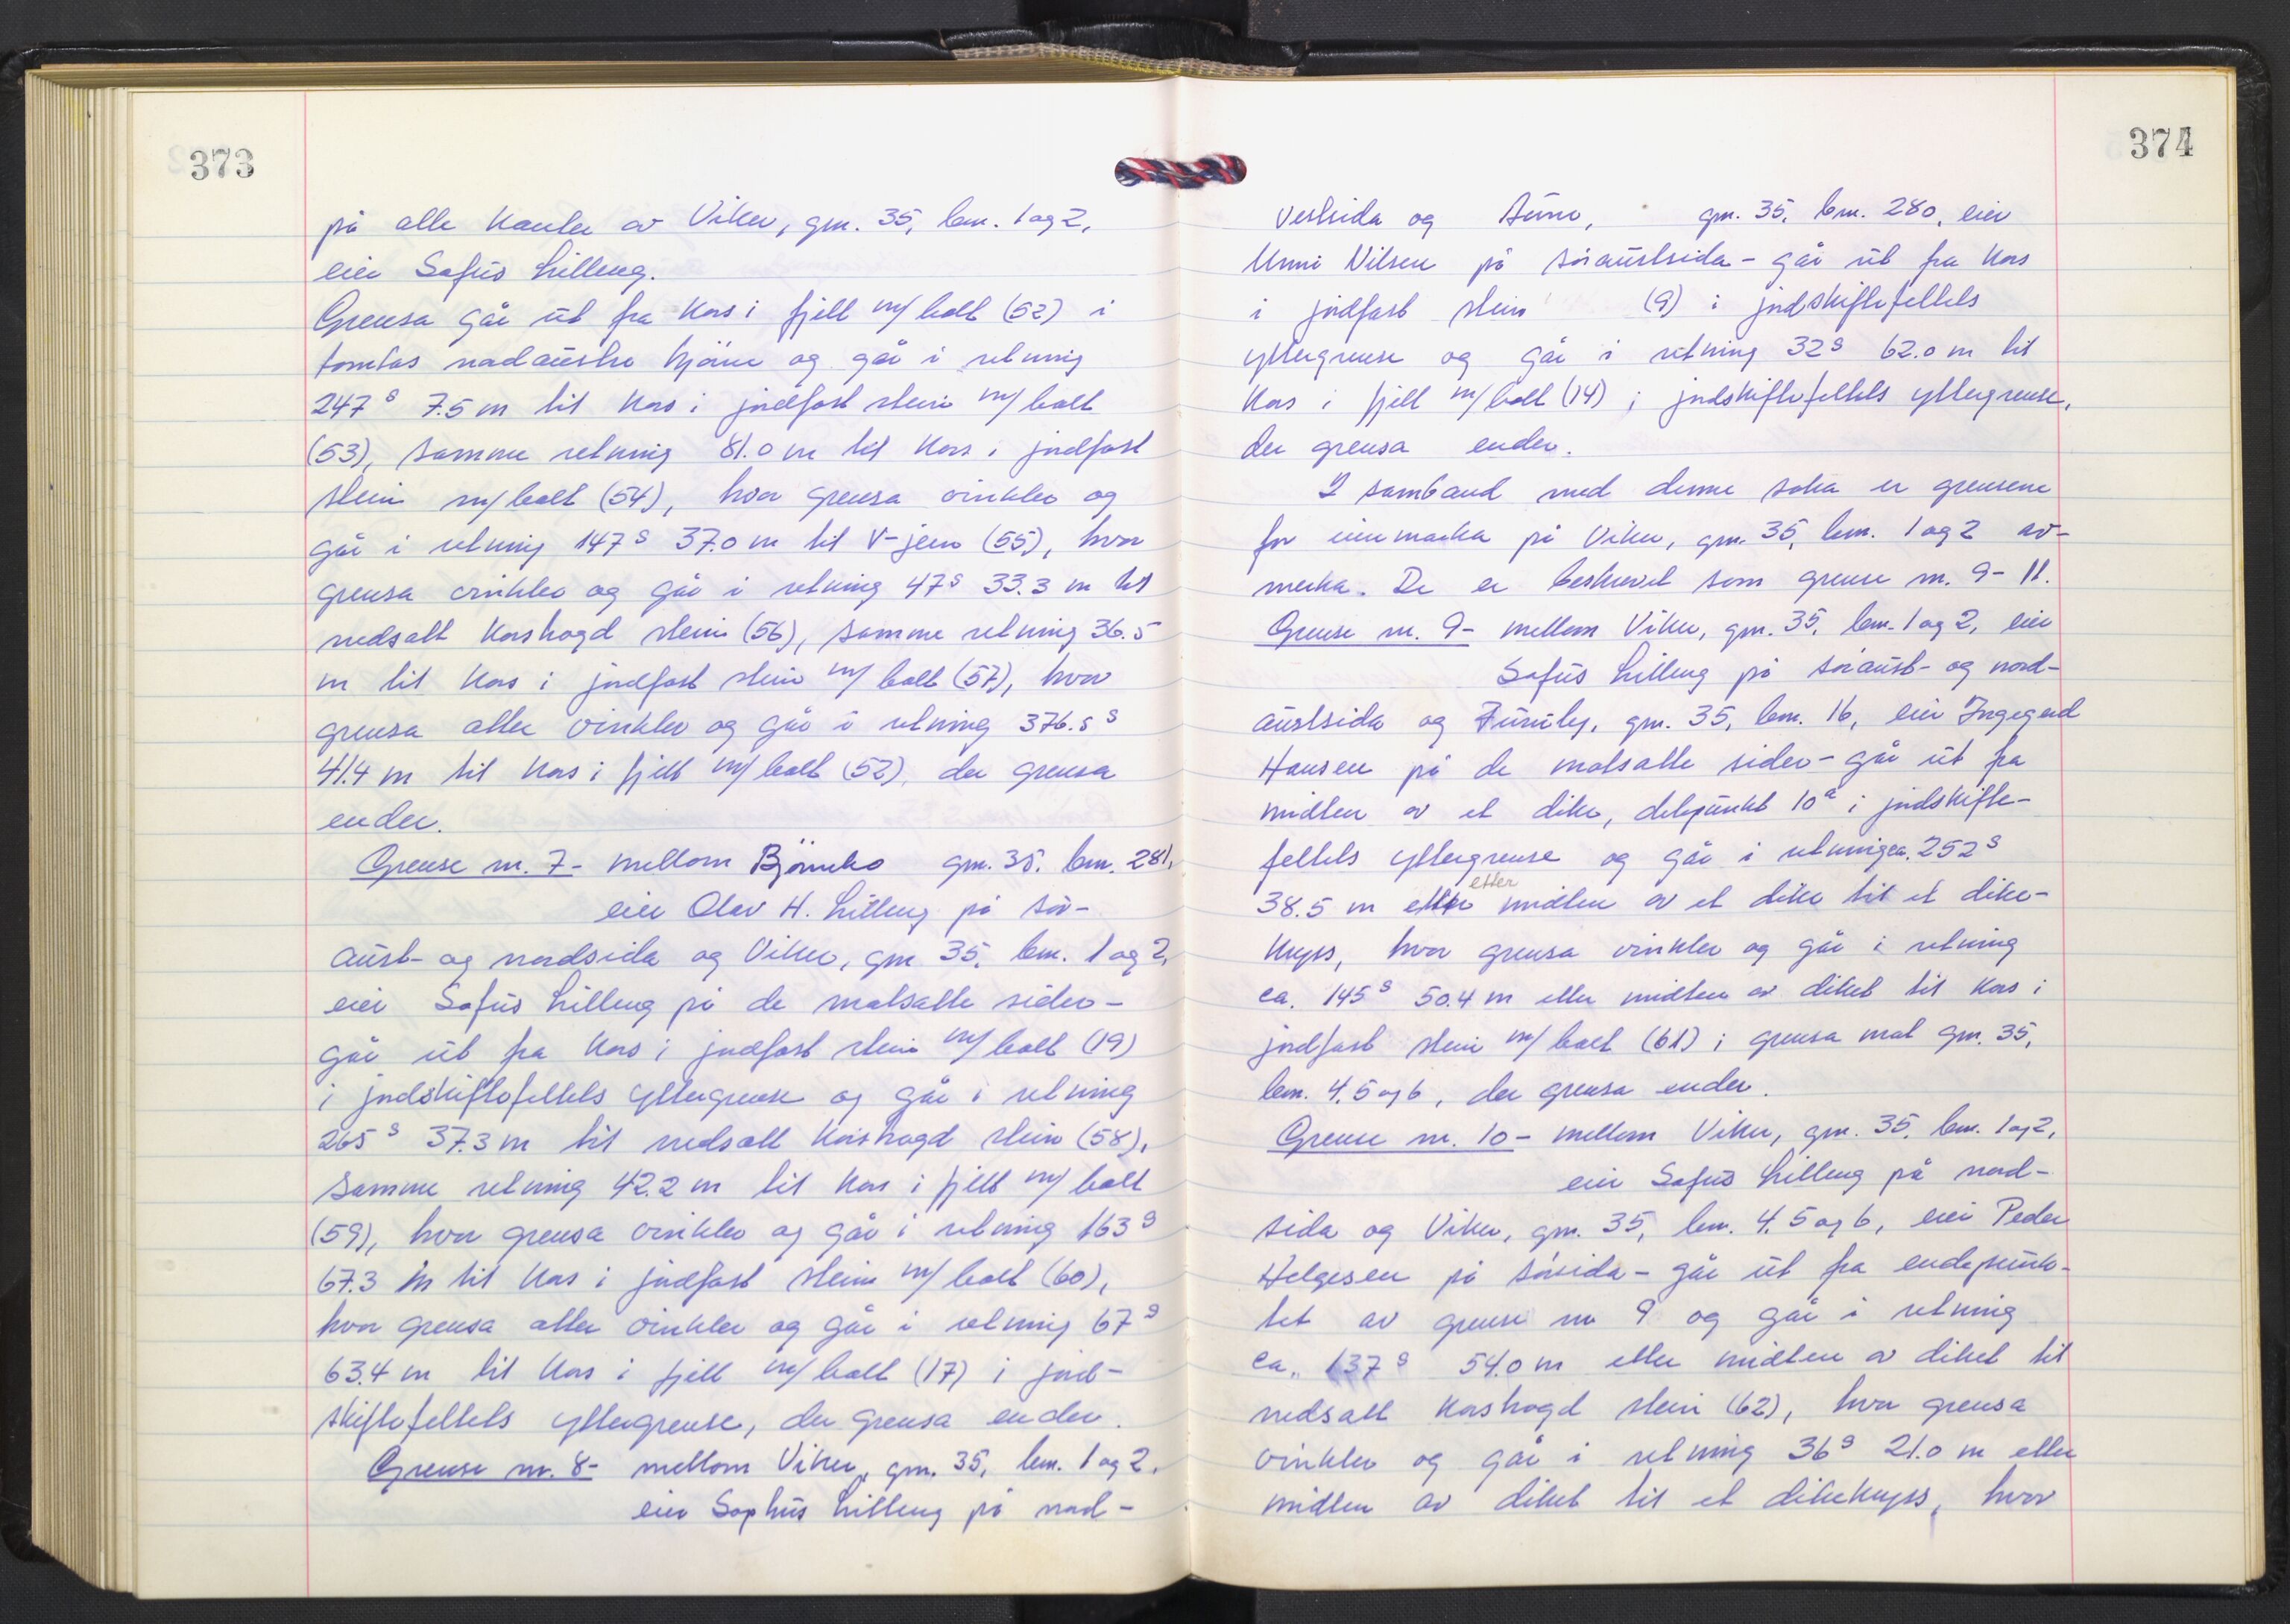 373
på alle kanter av Viken, gnr. 35, bnr. 1 og 2,
eier Sofus Lilleng.
Grensa går ut fra kors i fjell m/ bolt (52) i
tomtas nordaustre hjørne og går i retning
247 g 7.5 m til kors i jordfast stein m/ bolt
(53), samme retning 81.0 m til kors i jordfast
stein m/ bolt (54), hvor grensa vinkler og
går i retning 147 g 37.0 m til V-jern (55), hvor
grensa vinkler og går i retning 47 g 33.3 m til
nedsatt korshogd stein (56), samme retning 36.5
m til kors i jordfast stein m/ bolt (57), hvor
grensa atter vinkler og går i retning 376.5 g
41.4 m til kors i fjell m/ bolt (52), der grensa
ender.
Grense nr. 7 - mellom gnr. 35, bnr. 281,
eier Olav H. Lilleng på sør-
aust- og nordsida og Viken, gnr. 35, bnr. 1 og 2,
eier Sofus Lilleng på de motsatte sider -
går ut fra kors i jordfast stein m/ bolt (19)
i jordskiftefeltets yttergrense og går i retning
265 g 37.3 m til nedsatt korshogd stein (58),
samme retning 42.2 m til kors i fjell m/ bolt
(59), hvor grensa vinkler og går i retning 163 g
67.3 m til kors i jordfast stein m/ bolt (60),
hvor grensa atter vinkler og går i retning 67 g
63.4 m til kors i fjell m/ bolt (17) i jord-
skiftefeltets yttergrense, der grensa ender.
Grense nr. 8 - mellom Viken, gnr. 35, bnr. 1 og 2,
eier Sophus Lilleng på nord-
374
vestsida og gnr. 35, bnr. 280, eier
Unni Nilsen på søraustsida - går ut fra kors
i jordfast stein (9) i jordskiftefeltets
yttergrense og går i retning 32 g 62.0 m til
kors i fjell m/ bolt (14) i jordskiftefeltets yttergrense,
der grensa ender.
I samband med denne saka er grensene
for innmarka på Viken, gnr. 35, bnr. 1 og 2 av-
merka. De er beskrevet som grense nr. 9 - 11.
Grense nr. 9 - mellom Viken, gnr. 35, bnr. 1 og 2, eier
Sofus Lilleng på søraust- og nord-
austsida og Furuly, gnr. 35, bnr. 16, eier Ingegerd
Hansen på de motsatte sider - går ut fra
midten av et dike, delepunkt 10a i jordskifte-
feltets yttergrense og går i retning ca. 252 g
38.5 m etter midten av et dike til et dike-
kryss, hvor grensa vinkler og går i retning
ca. 145 g 50.4 m etter midten av diket til kors i
jordfast stein m/ bolt (61) i grensa mot gnr. 35,
bnr. 4, 5 og 6, der grensa ender.
Grense nr. 10 - mellom Viken, gnr. 35, bnr. 1 og 2,
eier Sofus Lilleng på nord-
sida og Viken, gnr. 35, bnr. 4, 5 og 6, eier Peder
Helgesen på sørsida - går ut fra endepunk-
tet av grense nr 9 og går i retning
ca. 137 g 54.0 m etter midten av diket til
nedsatt korshogd stein (62), hvor grensa
vinkler og går i retning 36 g 21.0 m etter
midten av diket til et dikekryss, hvor